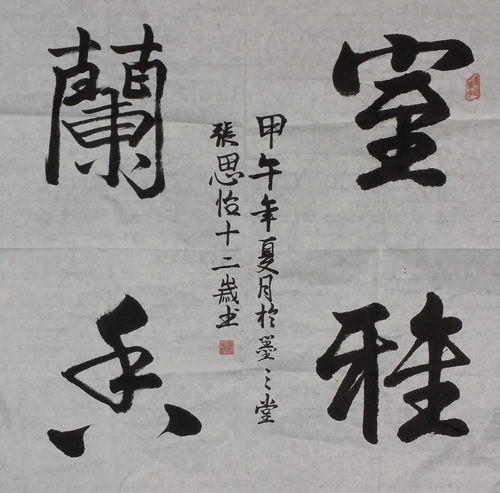 室雅
蘭香
甲午年夏月於墨之堂
張思怡十二歲书